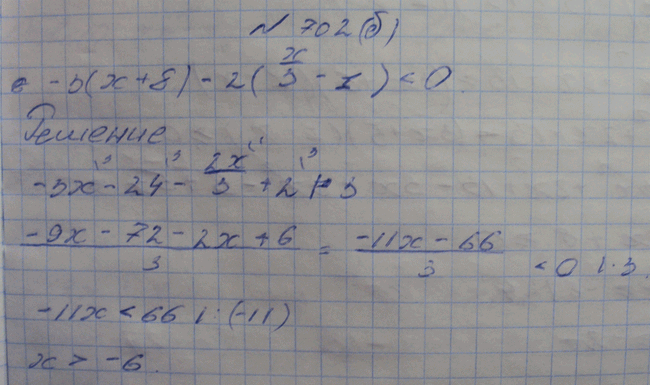 N 702(б)
-3(x+8) - 2(x/3 - 1) < 0
Решение
-3x - 24 - 2x/3 + 2 |·3
(-9x - 72 - 2x + 6)/3 = (-11x - 66)/3 < 0 |·3
-11x < 66 |:(-11)
x > -6.